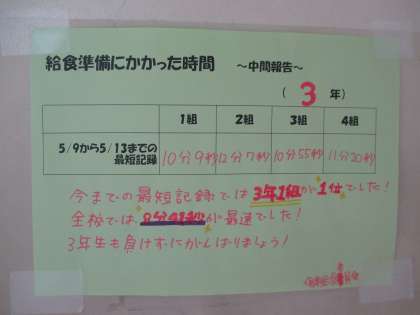 給食準備にかかった時間 ～中間報告～
（ 3 年）
1組 2組 3組 4組
5/9から5/13までの
最短記録
10分9秒 12分7秒 10分55秒 11分20秒
今までの最短記録では3年1組が1位でした！
全校では、8分41秒が最速でした！
3年生も負けずにがんばりましょう！